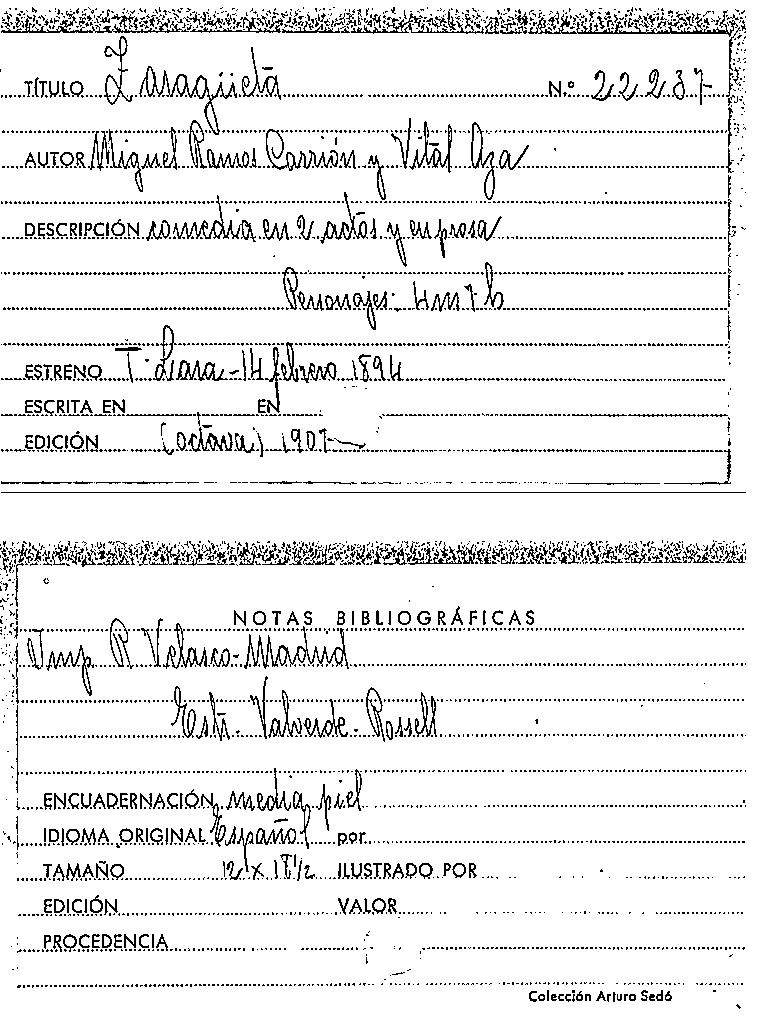 TÍTULO Zaragüeta N.º 22237
AUTOR Miguel Ramos Carrión y Vital Aza
DESCRIPCIÓN comedia en 2 actos y en prosa
Personajes: 4m 7h
ESTRENO T. Lara - 14 febrero 1894
ESCRITA EN EN
EDICIÓN (octava) 1907
NOTAS BIBLIOGRÁFICAS
Imp. R Velasco - Madrid
Estr. Valverde - Rossell
ENCUADERNACIÓN media piel
IDIOMA ORIGINAL Español por
TAMAÑO 12 x 18 1/2 ILUSTRADO POR
EDICIÓN VALOR
PROCEDENCIA
Colección Arturo Sedó